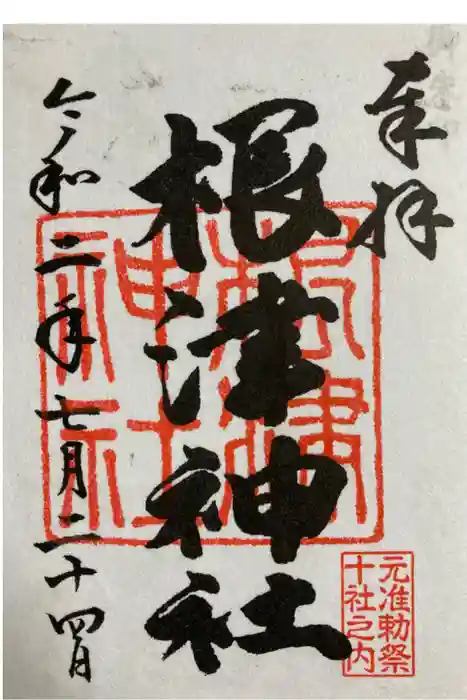 奉拝
根津神社
令和二年七月二十四日
根津
神社
元准勅祭
十社之内